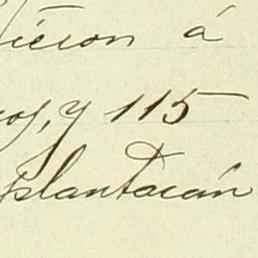 icieron á
os, y 115
plantacián